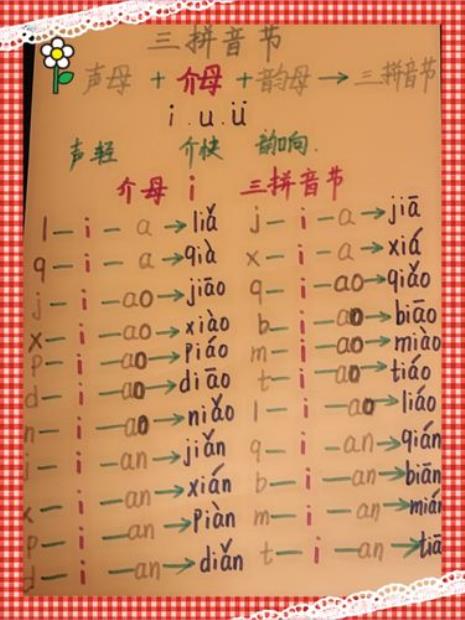 三拼音节
声母 + 介母 + 韵母 → 三拼音节
i . u . ü
声轻 介快 韵响.
介母 i 三拼音节
l — i — a → liǎ j — i — a → jiā
q — i — a → qià x — i — a → xiá
j — i — ao → jiāo q — i — ao → qiǎo
x — i — ao → xiào b — i — ao → biāo
p — i — ao → piáo m — i — ao → miào
d — i — ao → diāo t — i — ao → tiáo
n — i — ao → niǎo l — i — ao → liáo
j — i — an → jiǎn q — i — an → qián
x — i — an → xián b — i — an → biān
p — i — an → piàn m — i — an →
d — i — an → diǎn t — i — an →